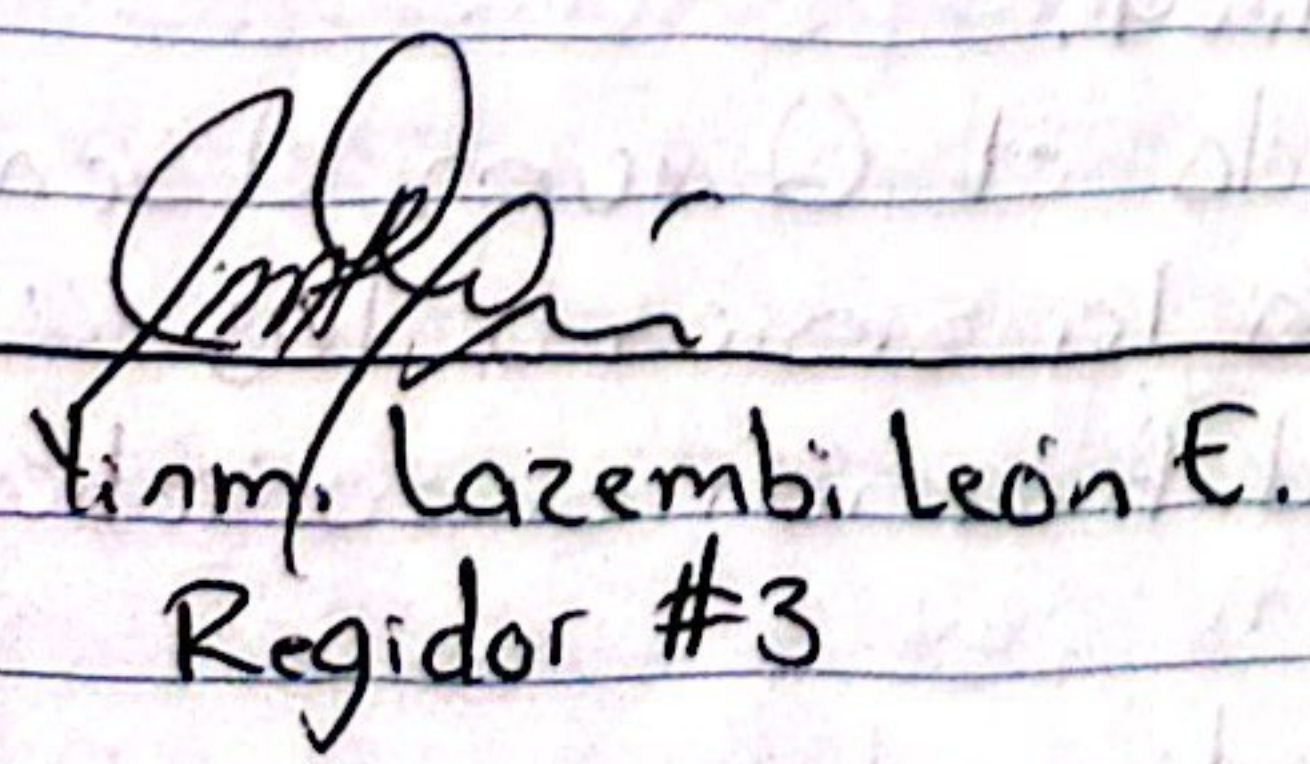 Yinm. Lazembi León E.
Regidor #3